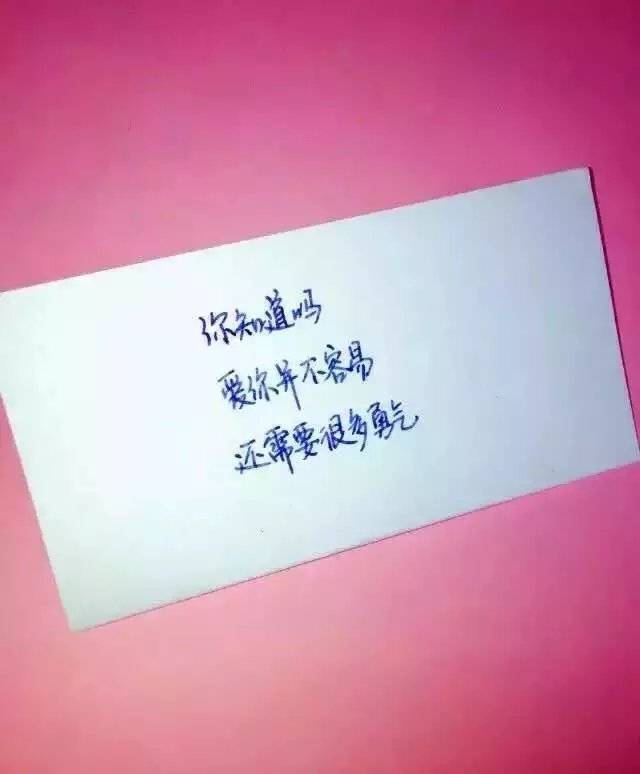 你知道吗
爱你并不容易
还需要很多勇气